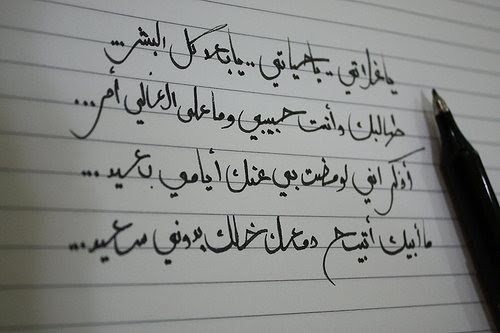 يا غلاتي .. يا حياتي .. يا بعد كل البشر ...
طالبك وأنت حبيبي وما على الغالي أمر ...
أذكر اني لو مضت بي عنك أيامي بعيد ...
ما أبيك أتيح دمعك خلك بدوني سعيد ...